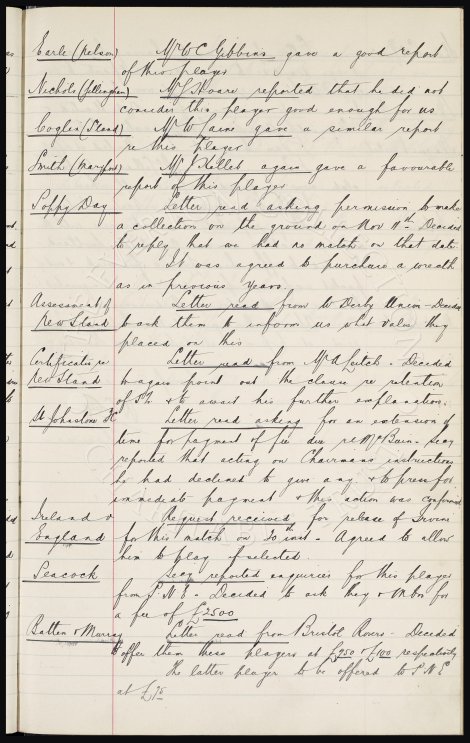 Earle (Nelson) Mr W C Gibbins gave a good report
of this player
Nichols (Gillingham) Mr S Hoare reported that he did not
consider this player good enough for us
Coglin (Stand) Mr W Laine gave a similar report
re this player
Smith (Maryport) Mr J Kellet again gave a favourable
report of this player
Poppy Day Letter read asking permission to make
a collection on the ground on Nov 11th. Decided
to reply that we had no match on that date.
It was agreed to purchase a wreath
as in previous years
Assessment of Letter read from W Derby Union - Decided
New Stand to ask them to inform us what value they
placed on this
Certificates re Letter read from Mr A Leitch - Decided
New Stand to again point out the clause re retention
of & to await his further explanation.
St Johnstone FC Letter read asking for an extension of
time for payment of fee due re McBain - Secy
reported that acting on Chairmans instructions
he had declined to give any & to press for
immediate payment & this action was confirmed
Ireland v Request received for release of Irvine
England for this match on 20th inst - Agreed to allow
him to play if selected.
Peacock Secy reported enquiries for this player
from P.N.E. - Decided to ask they & Mbro for
a fee of £2500
Batten & Murray Letter read from Bristol Rovers - Decided
to offer them these players at £250 & £100 respectively
The latter player to be offered to P.N.E
at £75